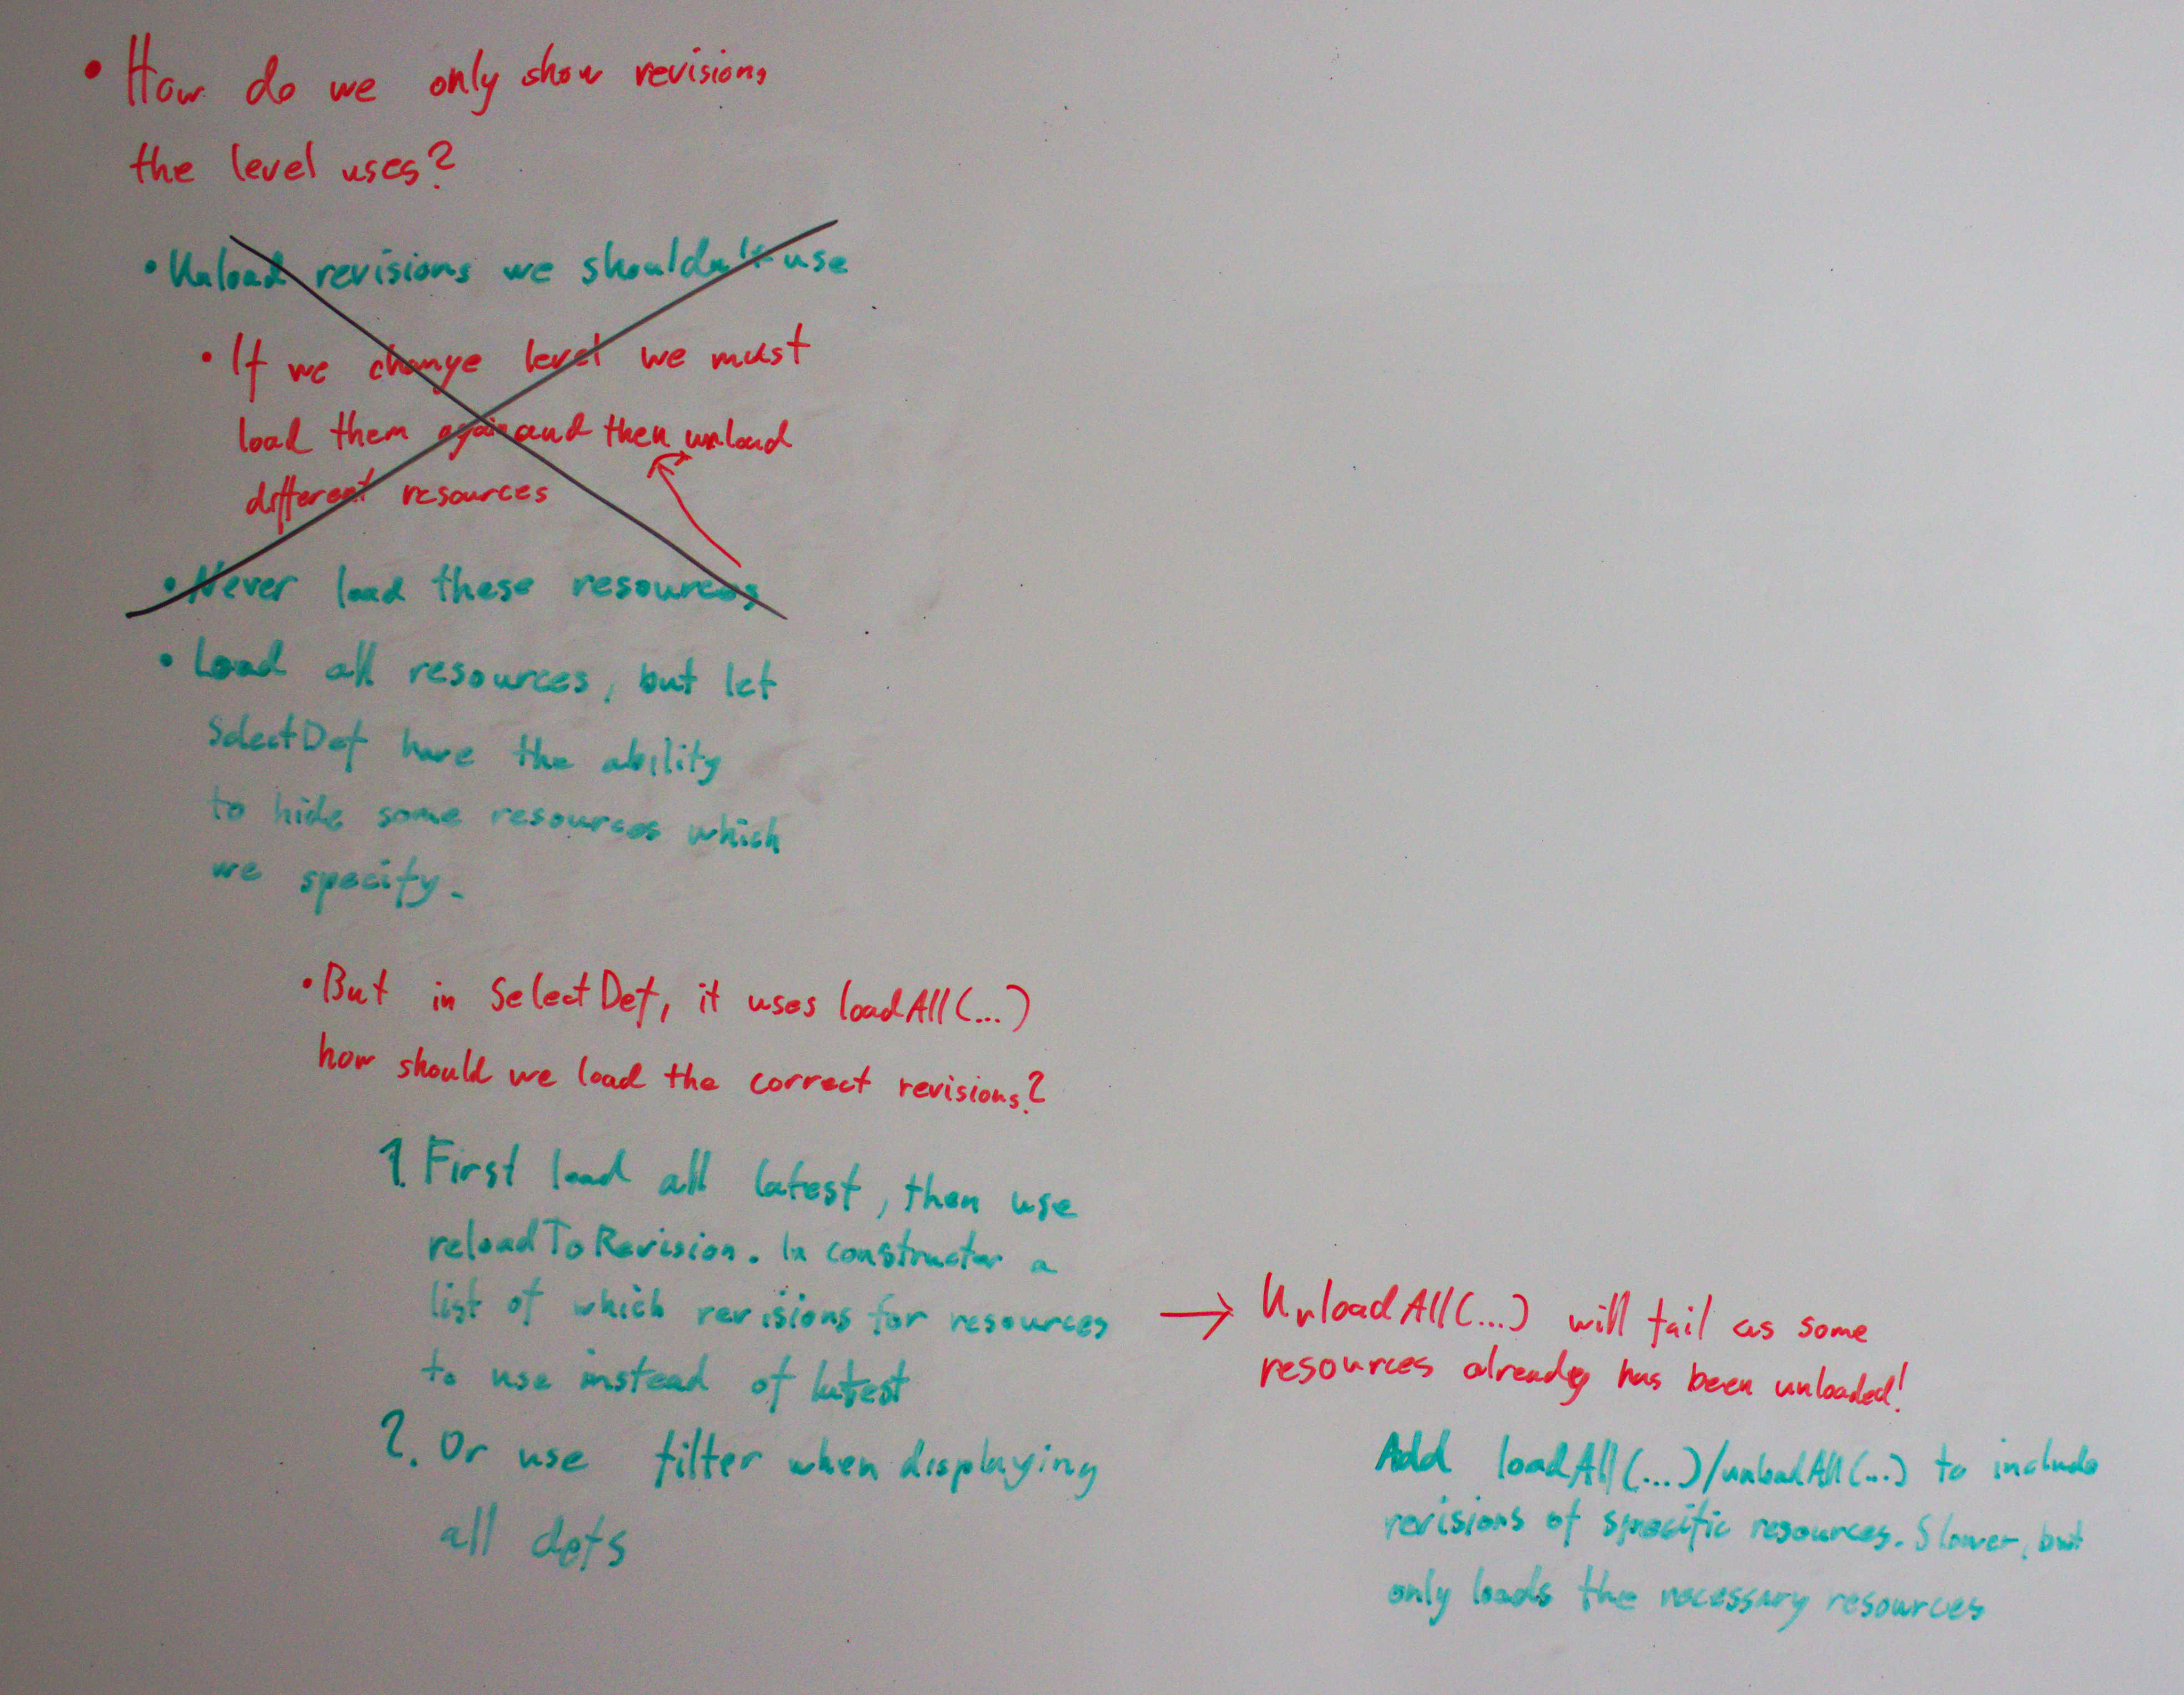 • How do we only show revisions
the level uses?
• Unload revisions we shouldn't use
• If we change level we must
load them again and then unload
different resources
• Never load these resources
• Load all resources, but let
SelectDef have the ability
to hide some resources which
we specify.
• But in SelectDef, it uses loadAll(...)
how should we load the correct revisions?
1. First load all latest, then use
reloadToRevision. In constructor a
list of which revisions for resources
to use instead of latest
2. Or use filter when displaying
all defs
→ UnloadAll(...) will fail as some
resources already has been unloaded!
Add loadAll(...)/unloadAll(...) to include
revisions of specific resources. Slower, but
only loads the necessary resources